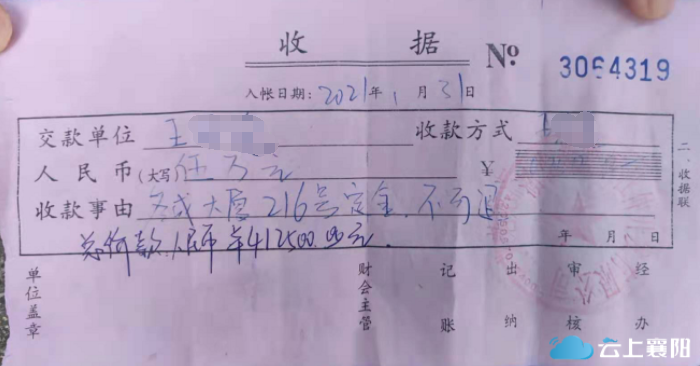 收 据
No 3064319
入帐日期: 2021年1月31日
交款单位 王 收款方式
人民币(大写) 伍万元 ¥
收款事由 大厦216号定金.不可退
总价款人民币¥412500.00元.
年 月 日
二、收据联
单位盖章
财会主管
记账
出纳
审核
经办
云上襄阳